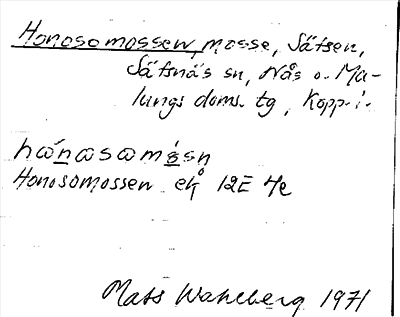 Honosomossen, mosse, Sätsen,
Säfsnäs sn, Nås o. Ma-
lungs doms. tg, Kopp. l.
Honosomossen ek 12E 4e
Mats Wahlberg 1971